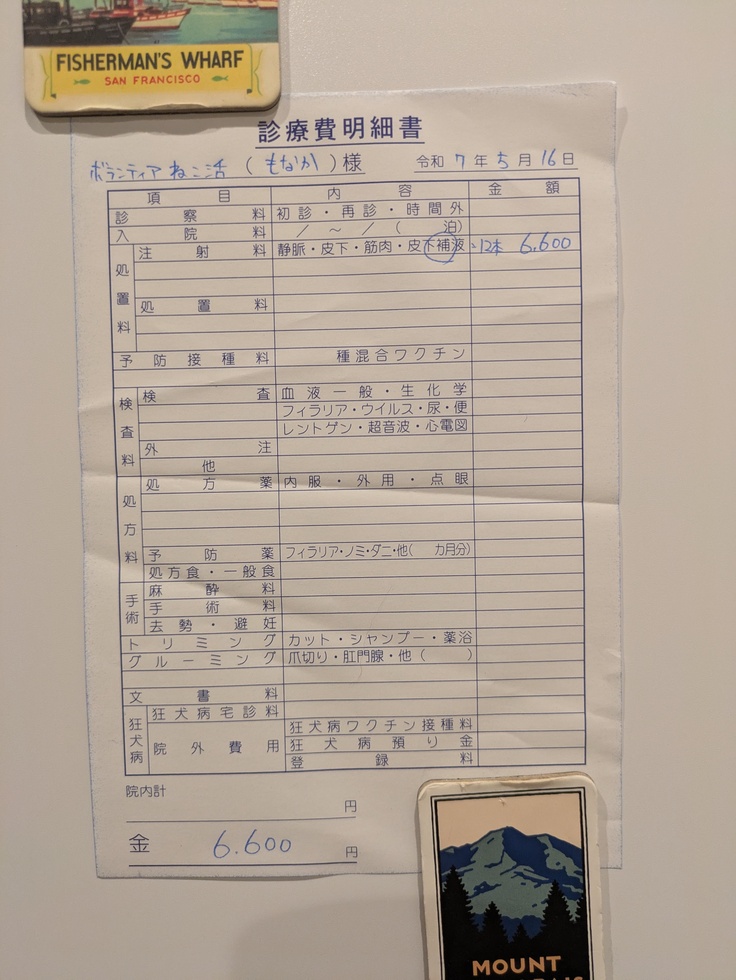 FISHERMAN'S WHARF
SAN FRANCISCO
診療費明細書
ボランティア ねこ活 (もなか) 様 令和 7 年 5 月 16 日
項目 内容 金額
診察料 初診・再診・時間外
入院料 / ~ / ( 泊)
処置料
注射料 静脈・皮下・筋肉・皮下補液 12本 6,600
処置料
予防接種料 種混合ワクチン
検査料
検査 血液一般・生化学
フィラリア・ウイルス・尿・便
レントゲン・超音波・心電図
外注
他
処方料
処方薬 内服・外用・点眼
予防薬 フィラリア・ノミ・ダニ・他( カ月分)
処方食・一般食
手術
麻酔料
手術料
去勢・避妊
トリミング カット・シャンプー・薬浴
グルーミング 爪切り・肛門腺・他( )
文書料
狂犬病
狂犬病宅診料
院外費用 狂犬病ワクチン接種料
狂犬病預り金
登録料
院内計
円
金 6.600 円
MOUNT